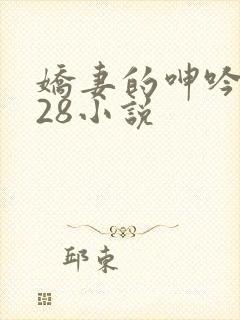 嬌妻的呻吟
28小説
邱東